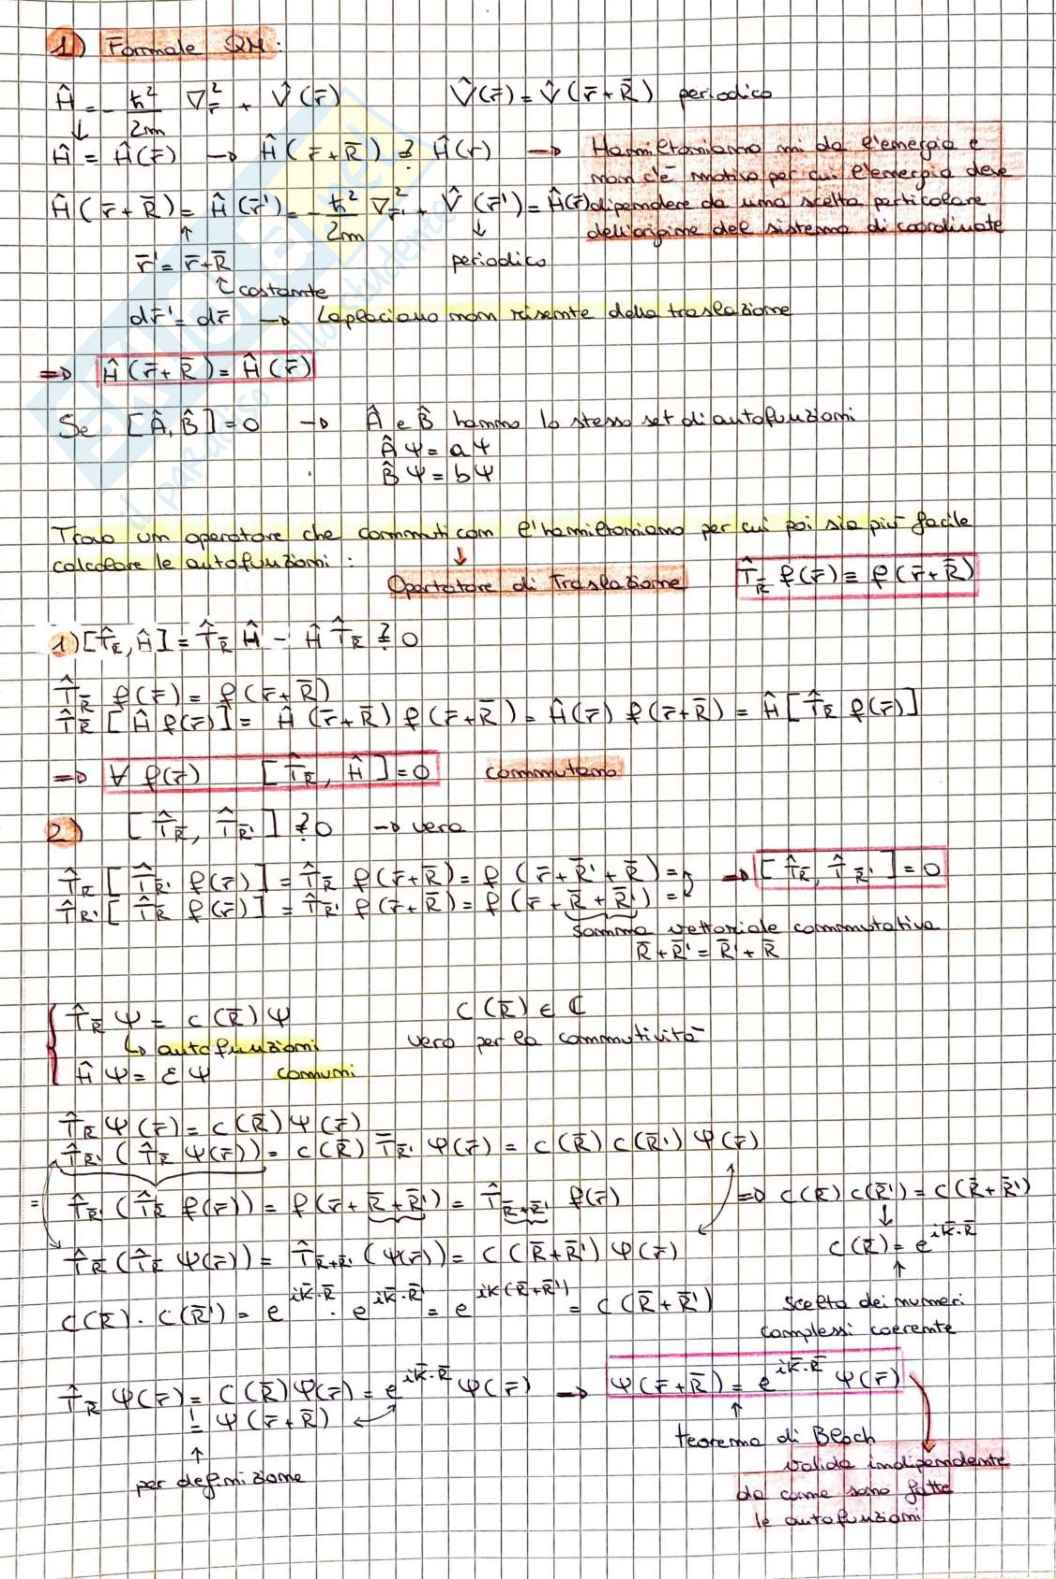 1) Formale QM:
Ĥ = - ħ²/2m ∇²_r̄ + V̂(r̄)    V̂(r̄) = V̂(r̄+R̄) periodico
↓
Ĥ = Ĥ(r̄) → Ĥ(r̄+R̄) ?= Ĥ(r) → Hamiltoniano mi da l'energia e
non c'è motivo per cui l'energia deve
Ĥ(r̄+R̄) = Ĥ(r̄') = - ħ²/2m ∇²_r̄' + V̂(r̄') = Ĥ(r̄) dipendere da una scelta particolare
dell'origine del sistema di coordinate
r̄' = r̄+R̄    periodico
costante
dr̄' = dr̄ → Laplaciano non risente della traslazione
⇒ Ĥ(r̄+R̄) = Ĥ(r̄)
Se [Â,B̂] = 0 → Â e B̂ hanno lo stesso set di autofunzioni
Âψ = aψ
B̂ψ = bψ
Trovo un operatore che commuti con l'hamiltoniano per cui poi sia più facile
calcolare le autofunzioni:
Opertatore di Traslazione    T̂_R̄ f(r̄) ≡ f(r̄+R̄)
1) [T̂_R̄, Ĥ] = T̂_R̄ Ĥ - Ĥ T̂_R̄ ?= 0
T̂_R̄ f(r̄) = f(r̄+R̄)
T̂_R̄ [Ĥ f(r̄)] = Ĥ(r̄+R̄) f(r̄+R̄) = Ĥ(r̄) f(r̄+R̄) = Ĥ[T̂_R̄ f(r̄)]
⇒ ∀ f(r̄)  [T̂_R̄, Ĥ] = 0  commutano
2) [T̂_R̄, T̂_R̄'] ?= 0 → vero
T̂_R̄ [T̂_R̄' f(r̄)] = T̂_R̄ f(r̄+R̄) = f(r̄+R̄'+R̄) =  → [T̂_R̄, T̂_R̄'] = 0
T̂_R̄' [T̂_R̄ f(r̄)] = T̂_R̄' f(r̄+R̄) = f(r̄+R̄+R̄') =
somma vettoriale commutativa
R̄+R̄' = R̄'+R̄
T̂_R̄ ψ = c(R̄)ψ    c(R̄) ∈ ℂ
↳ autofunzioni    vero per la commutività
Ĥψ = εψ  comuni
T̂_R̄ ψ(r̄) = c(R̄)ψ(r̄)
T̂_R̄' (T̂_R̄ ψ(r̄)) = c(R̄) T̄_R̄' ψ(r̄) = c(R̄) c(R̄') ψ(r̄)
= T̂_R̄' (T̂_R̄ f(r̄)) = f(r̄+R̄+R̄') = T̂_R̄+R̄' f(r̄)    ⇒ c(R̄) c(R̄') = c(R̄+R̄')
T̂_R̄ (T̂_R̄ ψ(r̄)) = T̂_R̄+R̄' (ψ(r̄)) = c(R̄+R̄') ψ(r̄)    c(R̄) = e^{ik̄·R̄}
c(R̄)·c(R̄') = e^{ik̄·R̄} · e^{ik̄·R̄'} = e^{ik(R̄+R̄')} = c(R̄+R̄')    scelta dei numeri
complessi coerente
T̂_R̄ ψ(r̄) = c(R̄)ψ(r̄) = e^{ik̄·R̄} ψ(r̄) → ψ(r̄+R̄) = e^{ik̄·R̄} ψ(r̄)
= ψ(r̄+R̄)
teorema di Bloch
per definizione    valida indipendente
da come sono fatte
le autofunzioni